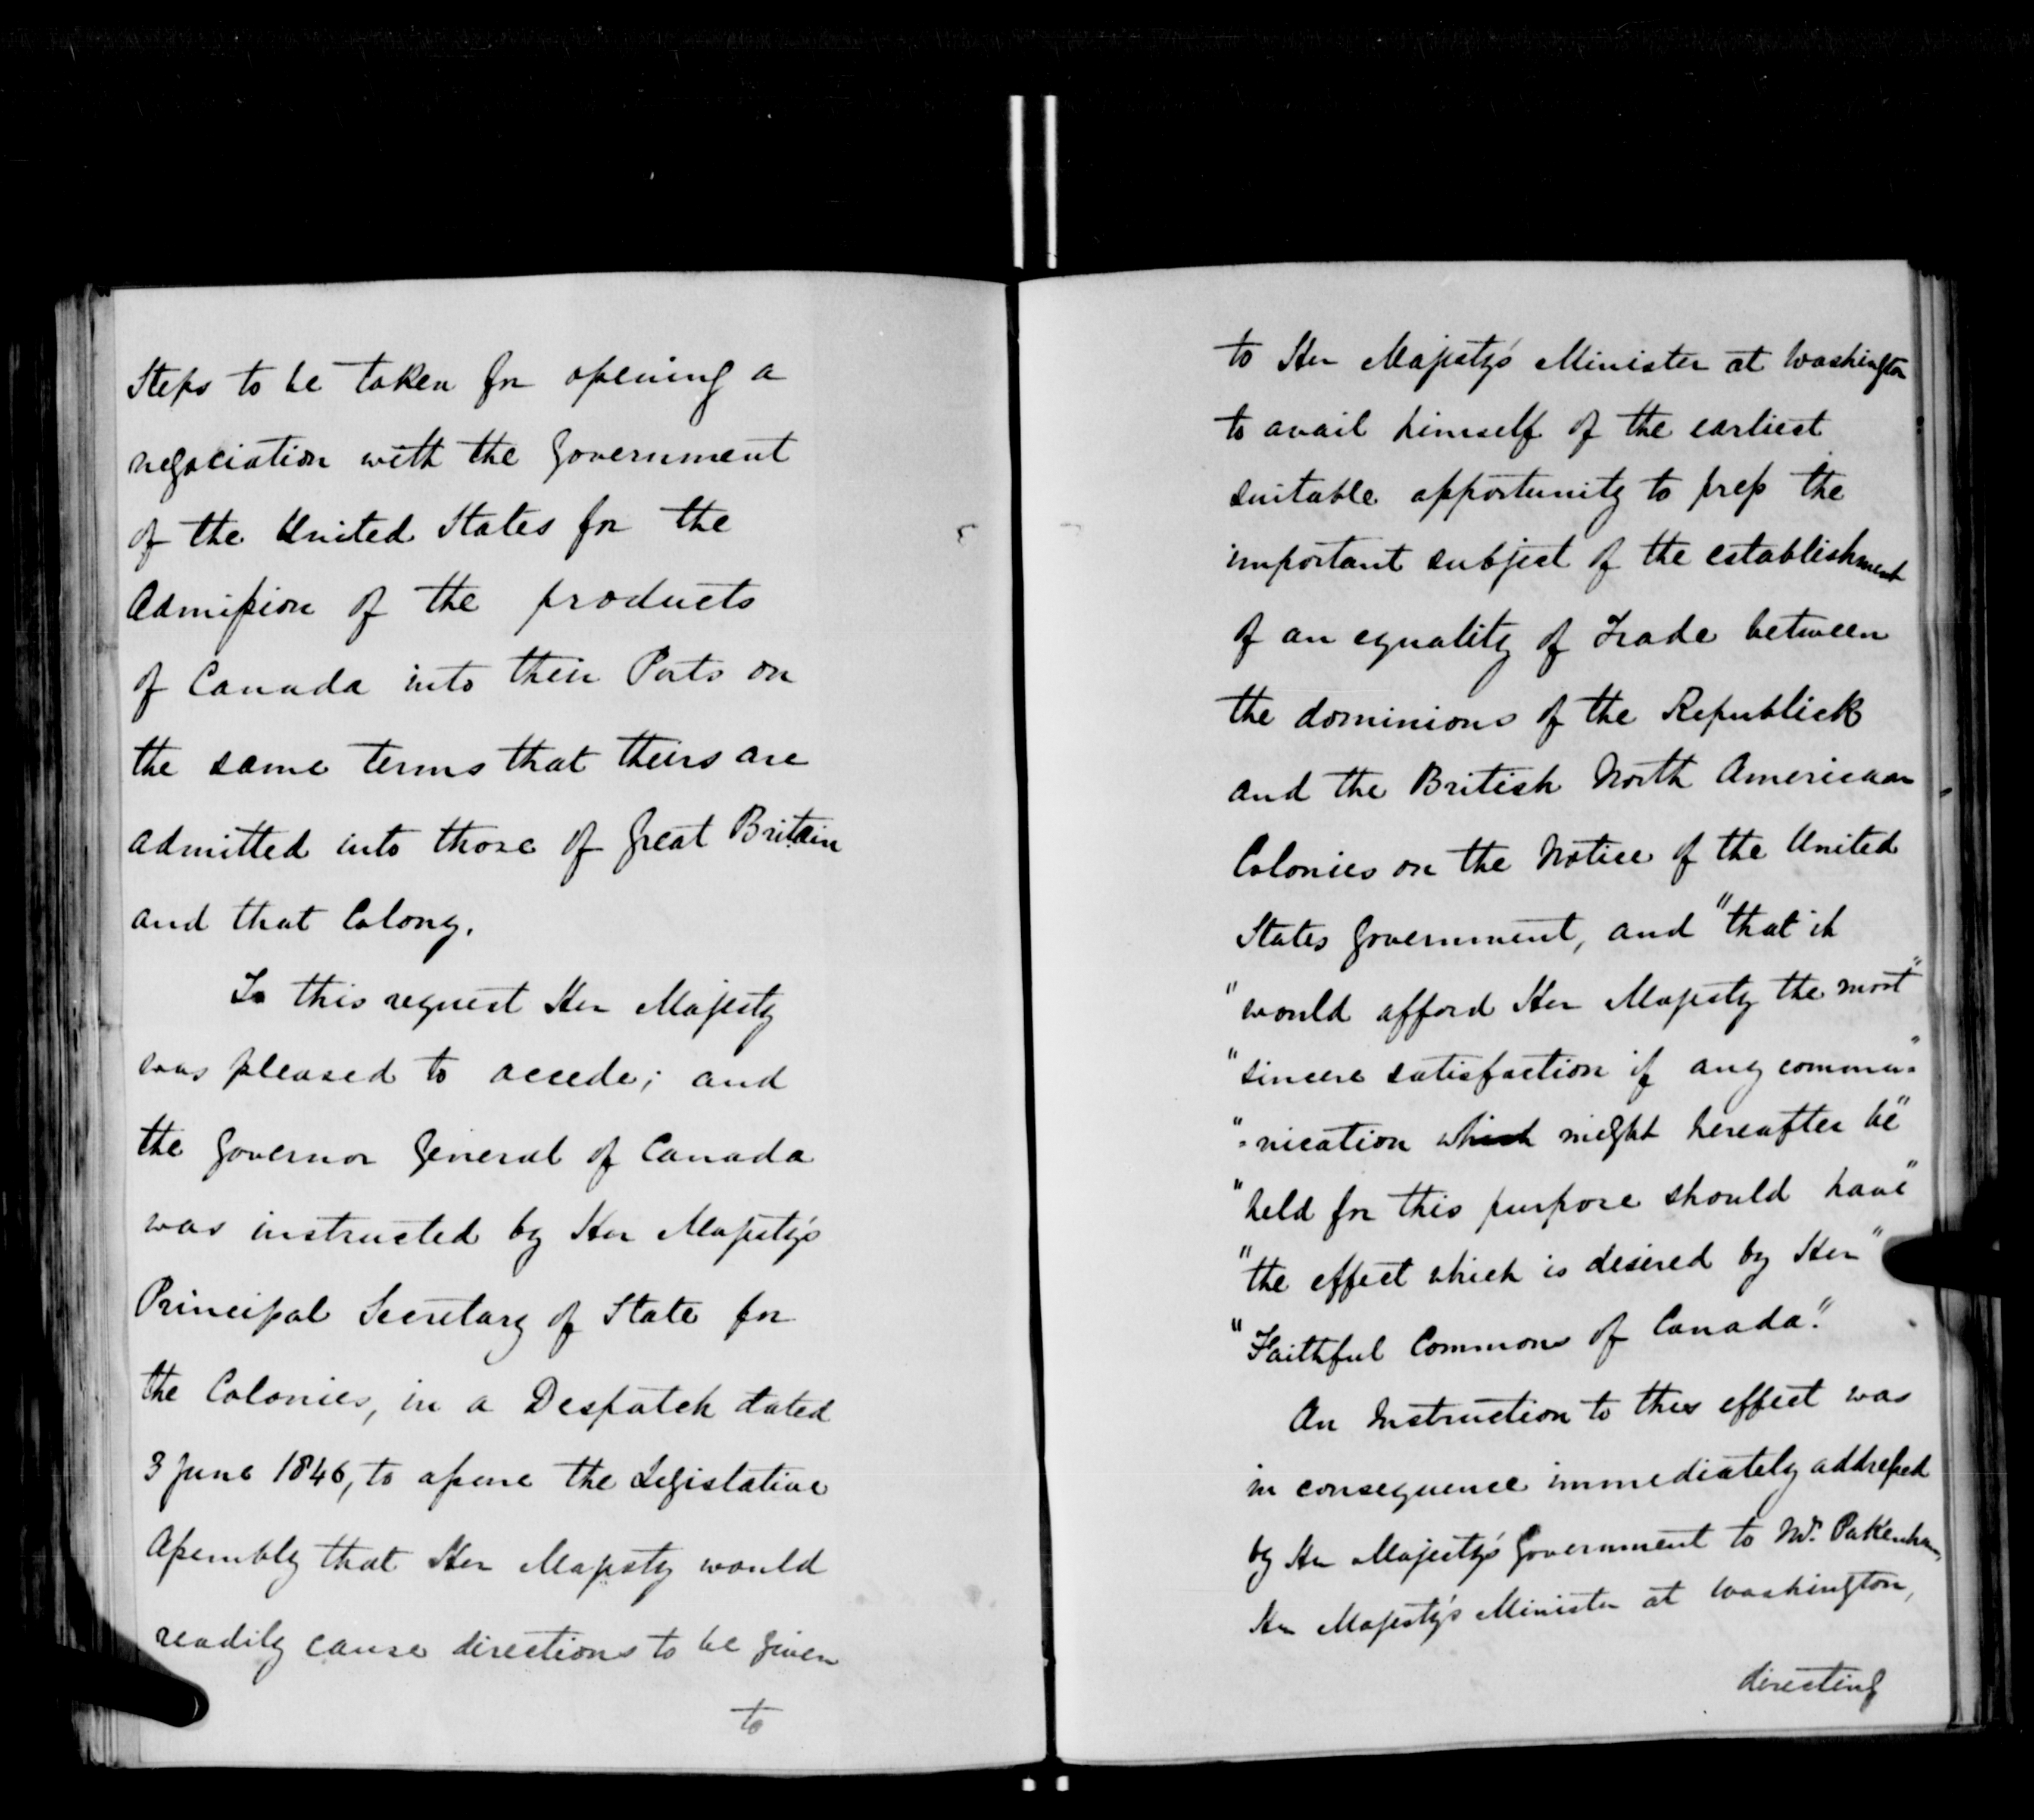 Steps to be taken for opening a
negociation with the Government
of the United States for the
Admission of the products
of Canada into their Ports on
the same terms that theirs are
admitted into those of Great Britain
and that Colony.
To this request Her Majesty
was pleased to accede; and
the Governor General of Canada
was instructed by Her Majesty's
Principal Secretary of State for
the Colonies, in a Despatch dated
3 June 1846, to assure the Legislative
Assembly that Her Majesty would
readily cause directions to be given
to
to Her Majesty's Minister at Washington
to avail himself of the earliest
suitable opportunity to press the
important subject of the establishment
of an equality of Trade between
the dominions of the Republick
and the British North American
Colonies on the Notice of the United
States Government, and "that it
"would afford Her Majesty the most"
"sincere satisfaction if any commu="
"=nication which might hereafter be"
"held for this purpose should have"
"the effect which is desired by Her"
"Faithful Commons of Canada."
An Instruction to this effect was
in consequence immediately addressed
by Her Majesty's Government to Mr. Pakenham,
Her Majesty's Minister at Washington,
directing